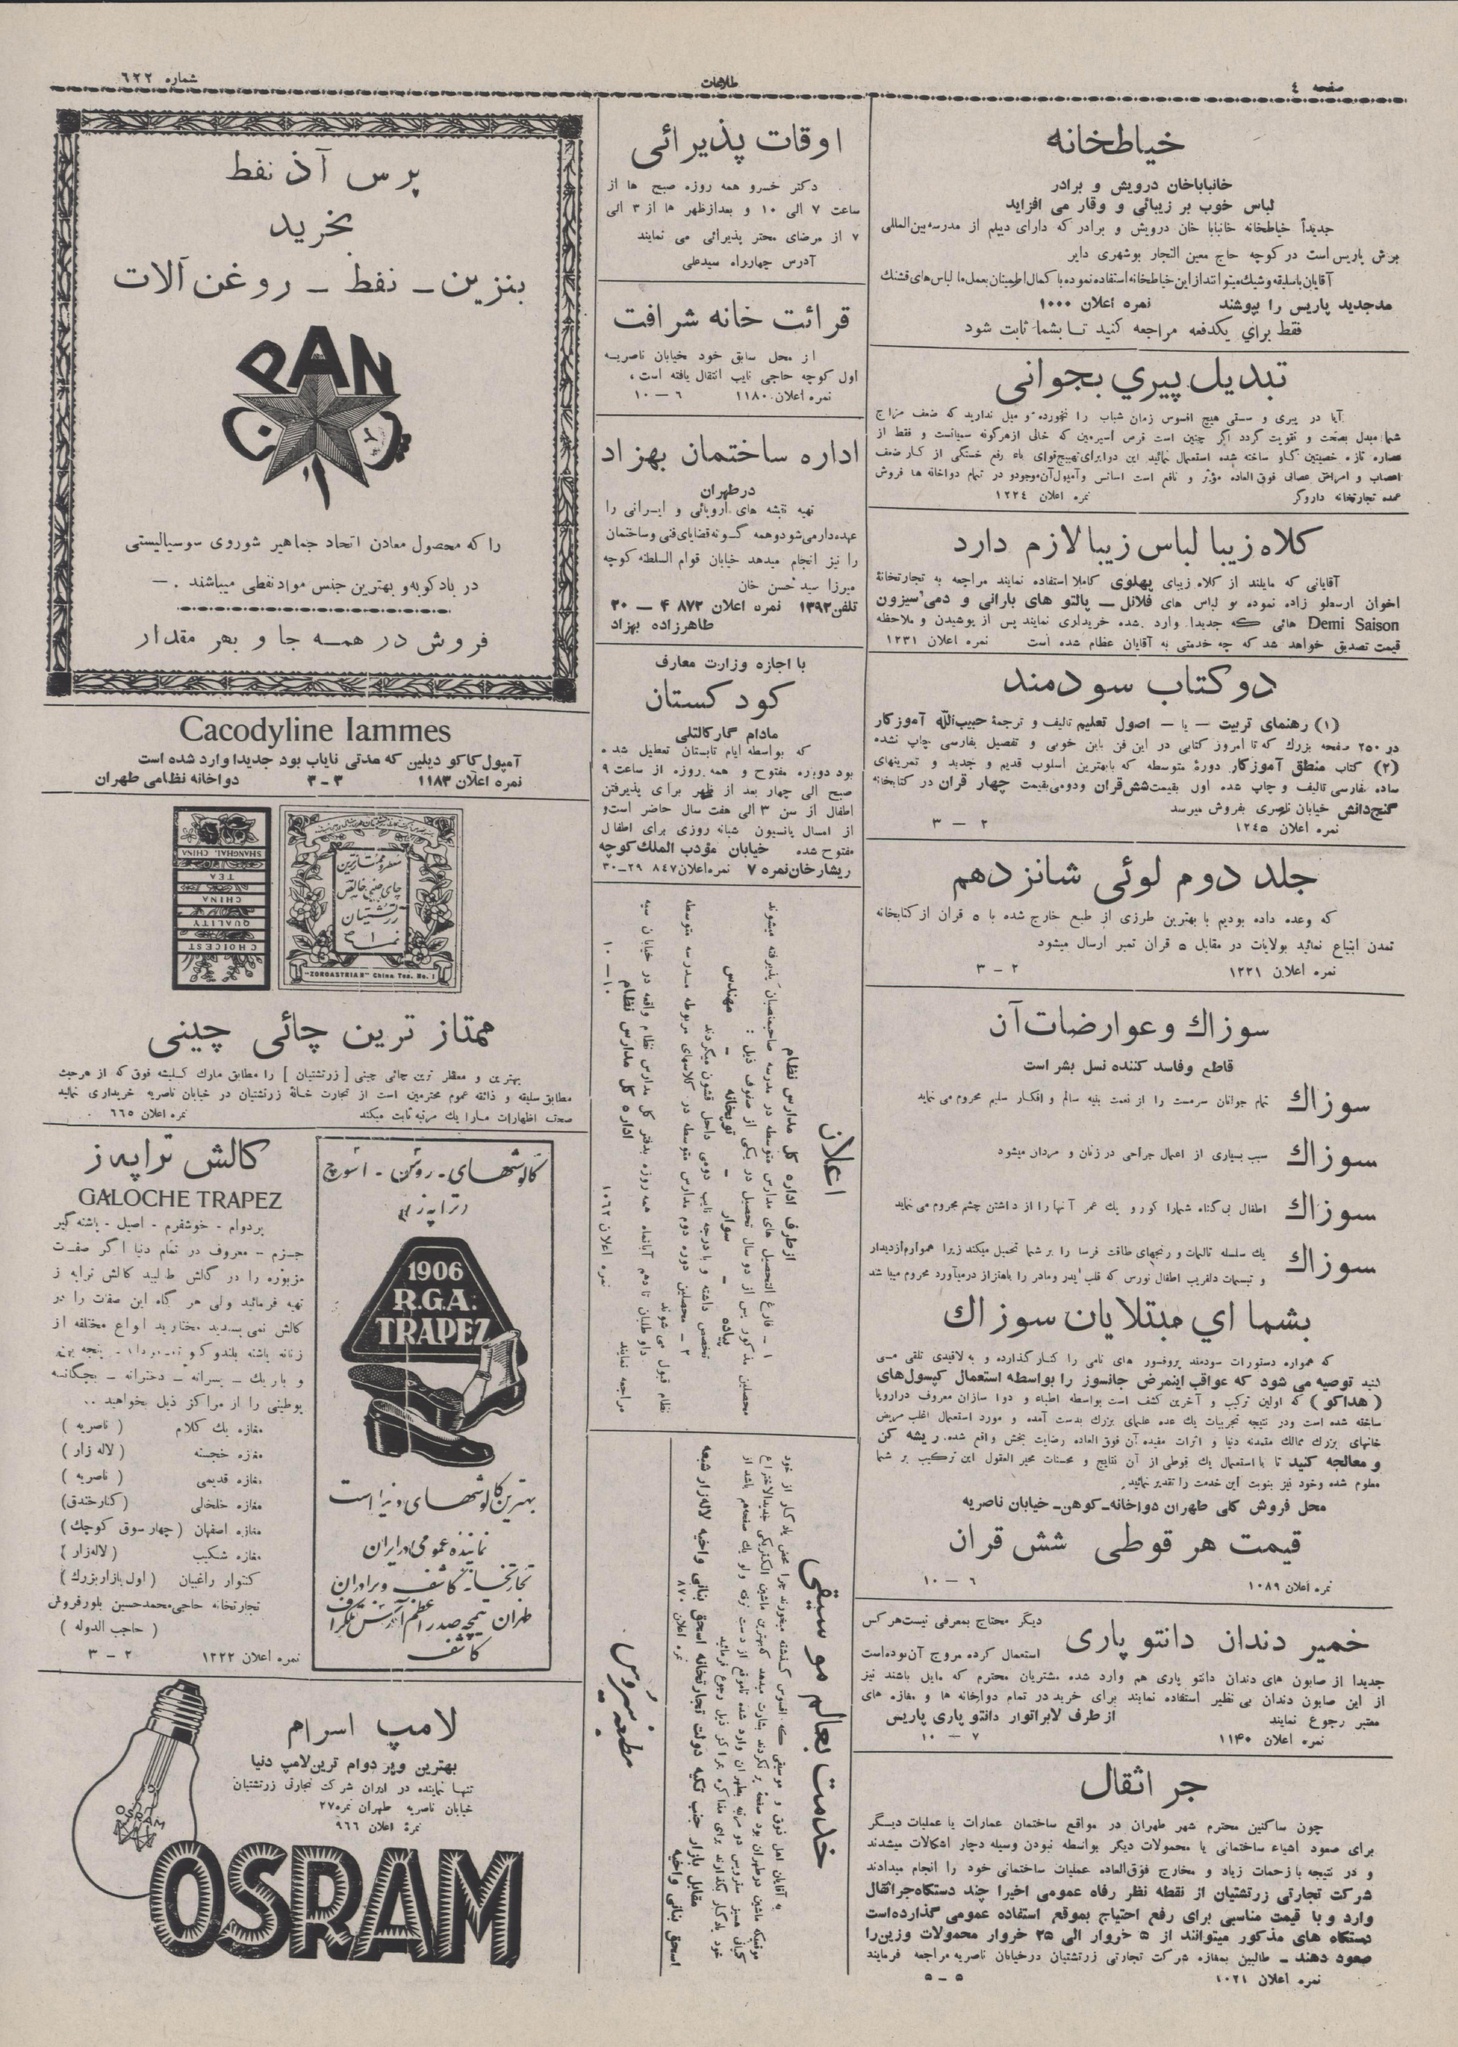 صفحه ٤
طلاعات
شماره ٦٢٢
خیاطخانه
خانباباخان درویش و برادر
لباس خوب بر زیبائی و وقار می افزاید
جدیداً خیاطخانه خانبابا خان درویش و برادر که دارای دیپلم از مدرسه بین‌المللی
برش پاریس است در کوچه حاج معین التجار بوشهری دایر
آقایان باسلیقه و شیك میتوانند از این خیاطخانه استفاده نموده با کمال اطمینان بعمل ما لباس های قشنك
مد جدید پاریس را بپوشند نمره اعلان ۱۰۰۰
فقط برای یکدفعه مراجعه کنید تا بشما ثابت شود
تبدیل پیري بجوانی
آیا در پیری و سستی هیچ افسوس زمان شباب را نخورده و میل ندارید که ضعف مزاج
شما مبدل بصحت و تقویت گردد اگر چنین است قرص آسپرمین که خالی از هر گونه سمیاتست و فقط از
عصاره تازه خصیتین گاو ساخته شده استعمال نمائید این دوا برای تهییج قوای باه رفع خستگی از کار ضعف
اعصاب و امراض عصبانی فوق العاده مؤثر و نافع است اسانس و آمپول آن موجود و در تمام دواخانه ها فروش
عمده تجارتخانه داروگر نمره اعلان ۱۲۲٤
کلاه زیبا لباس زیبا لازم دارد
آقایانی که مایلند از کلاه زیبای پهلوی کاملا استفاده نمایند مراجعه به تجارتخانهٔ
اخوان ارسطو زاده نموده و لباس های فلانل ــ پالتو های بارانی و دمی سیزون
Demi Saison هائی که جدیدا وارد شده خریداری نمایند پس از پوشیدن و ملاحظه
قیمت تصدیق خواهند شد که چه خدمتی به آقایان عظام شده است نمره اعلان ۱۲۳۱
دو کتاب سودمند
(۱) رهنمای تربیت ــ یا ــ اصول تعلیم تالیف و ترجمهٔ حبیب‌الله آموزکار
در ۲۵۰ صفحه بزرك که تا امروز کتابی در این فن باین خوبی و تفصیل بفارسی چاپ نشده
(۲) کتاب منطق آموزکار دورهٔ متوسطه که بابهترین اسلوب قدیم و جدید و تمرینهای
ساده بفارسی تالیف و چاپ شده اول بقیمت شش قران و دومی بقیمت چهار قران در کتابخانه
گنج دانش خیابان ناصری بفروش میرسد
نمره اعلان ۱۲٤٥ ۲ ــ ۳
جلد دوم لوئی شانزدهم
که وعده داده بودیم با بهترین طرزی از طبع خارج شده با ٥ قران از کتابخانه
تمدن ابتیاع نمائید بولایات در مقابل ٥ قران تمبر ارسال میشود
نمره اعلان ۱۲۲۱ ۲ ــ ۳
سوزاك و عوارضات آن
قاطع و فاسد کننده نسل بشر است
سوزاك تمام جوانان سرمست را از نعمت بنیه سالم و افکار سلیم محروم می نماید
سوزاك سبب بسیاری از اعمال جراحی در زنان و مردان میشود
سوزاك اطفال بی گناه شمارا کور و یك عمر آنها را از داشتن چشم محروم می نماید
سوزاك یك سلسله تالمات و رنجهای طاقت فرسا را بر شما تحمیل میکند زیرا همواره از دیدار
و تبسمات دلفریب اطفال نورس که قلب پدر و مادر را باهتزاز درمیآورد محروم میباشد
بشما اي مبتلایان سوزاك
که همواره دستورات سودمند پروفسور های نامی را کنار گذارده و به لاقیدی تلقی می
کنید توصیه می شود که عواقب اینمرض جانسوز را بواسطه استعمال کپسول‌های
(هداکو) که اولین ترکیب و آخرین کشف است بواسطه اطباء و دوا سازان معروف در اروپا
ساخته شده است و در نتیجه تجربیات یك عده علمای بزرك بدست آمده و مورد استعمال اغلب مریض
خانهای بزرك ممالك متمدنه دنیا و اثرات مفیده آن فوق العاده رضایت بخش واقع شده. ریشه کن
و معالجه کنید تا با استعمال یك قوطی از آن نتایج و محسنات محیر العقول این ترکیب بر شما
معلوم شده و خود نیز بنوبت این خدمت را تقدیر نمائید
محل فروش کلی طهران دواخانه ــ کوهن ــ خیابان ناصریه
قیمت هر قوطی شش قران
نمره اعلان ۱۰۸۹ ٦ ــ ۱۰
خمیر دندان دانتو پاری دیگر محتاج بمعرفی نیست هر کس
استعمال کرده مروج آن بوده است
جدیدا از صابون های دندان دانتو پاری هم وارد شده مشتریان محترم که مایل باشند نیز
از این صابون دندان بی نظیر استفاده نمایند برای خرید در تمام دواخانه ها و مغازه های
معتبر رجوع نمایند از طرف لابراتوار دانتو پاری پاریس
نمره اعلان ۱۱۴۰ ۷ ــ ۱۰
جر اثقال
چون ساکنین محترم شهر طهران در مواقع ساختمان عمارات یا عملیات دیگر
برای صعود اشیاء ساختمانی یا محمولات دیگر بواسطه نبودن وسیله دچار اشکالات میشدند
و در نتیجه با زحمات زیاد و مخارج فوق‌العاده عملیات ساختمانی خود را انجام میدادند
شرکت تجارتی زرتشتیان از نقطه نظر رفاه عمومی اخیرا چند دستگاه جر اثقال
وارد و با قیمت مناسبی برای رفع احتیاج بموقع استفاده عمومی گذارده است
دستگاه های مذکور میتوانند از ٥ خروار الی ۲۵ خروار محمولات وزین را
صعود دهند ــ طالبین بمغازه شرکت تجارتی زرتشتیان در خیابان ناصریه مراجعه فرمایند
نمره اعلان ۱۰۲۱ ٥ ــ ٥
اوقات پذیرائی
دکتر خسرو همه روزه صبح ها از
ساعت ۷ الی ۱۰ و بعد از ظهر ها از ۳ الی
۷ از مرضای محتر پذیرائی می نمایند
آدرس چهارراه سیدعلی
قرائت خانه شرافت
از محل سابق خود خیابان ناصریه
اول کوچه حاجی نایب انتقال یافته است،
نمره اعلان ۱۱۸۰ ٦ ــ ۱۰
اداره ساختمان بهزاد
در طهران
تهیه نقشه های اروپائی و ایرانی را
عهده دار می شود و همه گونه قضایای فنی و ساختمان
را نیز انجام میدهد خیابان قوام السلطنه کوچه
میرزا سید حسن خان
تلفن ۱۳۹۲ نمره اعلان ۸۷۳ ۴ ــ ۳۰
طاهرزاده بهزاد
با اجازه وزارت معارف
کودکستان
مادام گارکالتلی
که بواسطه ایام تابستان تعطیل شده
بود دوباره مفتوح و همه روزه از ساعت ۹
صبح الی چهار بعد از ظهر برای پذیرفتن
اطفال از سن ۳ الی هفت سال حاضر است و
از امسال پانسیون شبانه روزی برای اطفال
مفتوح شده خیابان مؤدب الملك کوچه
ریشار خان نمره ۷ نمره اعلان ۸٤۷ ۲۹ــ۳۰
اعلان
از طرف اداره کل مدارس نظام
۱ ــ فارغ التحصیل های مدارس متوسطه در مدرسه صاحبمنصبان پذیرفته میشوند
محصلین مذکور پس از دو سال تحصیل در یکی از صنوف ذیل :
پیاده ــ سوار ــ توپخانه ــ مهندس
تخصص داشته و با درجه نایب دومی داخل قشون میگردند
۲ ــ محصلین دوره دوم مدارس متوسطه در کلاسهای مربوطه مدرسه متوسطه
نظام قبول می شوند
داوطلبان تا دهم آبانماه همه روزه بدفتر کل مدارس نظام واقعه در خیابان سپه
مراجعه نمایند اداره کل مدارس نظام
نمره اعلان ۱۰٦۲ ۱۰ــ۱۰
خدمت بعالم موسیقی
به آقایان اهل ذوق و موسیقی که افسوس گذشته میخورند چرا عوض یادگار از خود
اسحق بنانی واخیه لاله‌زار شعبه
مقابل بازار جنب تکیه دولت تجارتخانه اسحق بنانی واخیه
نمره اعلان ۸۷۰
اسحق بنانی واخیه
مطبعه سیروس
پرس آذ نفط
بخرید
بنزین ــ نفط ــ روغن آلات
PAN
را که محصول معادن اتحاد جماهیر شوروی سوسیالیستی
در بادکوبه و بهترین جنس مواد نفطی میباشند . ــ
فروش در همه جا و بهر مقدار
Cacodyline Iammes
آمپول کاکو دیلین که مدتی نایاب بود جدیدا وارد شده است
نمره اعلان ۱۱۸۳ ۳ ــ ۳ دواخانه نظامی طهران
SHANGHAI, CHINA
TEA
CHINA
QUALITY
CHOICEST
چای چینی خالص
زرتشتیان
نمره ۱
"ZOROASTRIAN" China Tea. No. 1
ممتاز ترین چائی چینی
بهترین و معطر ترین چائی چینی [زرتشتیان] را مطابق مارك کلیشه فوق که از هر حیث
مطابق سلیقه و ذائقه عموم محترمین است از تجارت خانهٔ زرتشتیان در خیابان ناصریه خریداری نمائید
صحت اظهارات ما را یك مرتبه ثابت میکند نمره اعلان ٦٦٥
گالوشهای - روشن - اسوج
تراپز
1906
R.G.A.
TRAPEZ
بهترین گالوشهای دنیا است
نماینده عمومی در ایران
تجارتخانه کاشف و برادران
طهران تیمچه صدراعظم آدرس تلگراف
کاشف
کالش تراپه ز
GALOCHE TRAPEZ
پردوام - خوشفرم - اصیل - پاشنه گیر
جزم - معروف در تمام دنیا اگر صفت
مزبوره را در گالش طالبید کالش تراپه ز
تهیه فرمائید ولی هر گاه این صفات را در
کالش نمی پسندید مختارید انواع مختلفه از
و باریك ــ پسرانه ــ دخترانه ــ بچگانه
بوطینی را از مراکز ذیل بخواهید ..
مغازه بك کلام (ناصریه)
مغازه خجسته (لاله زار)
مغازه قدیمی (ناصریه)
مغازه خلخلی (کنار خندق)
مغازه اصفهان (چهار سوق کوچك)
مغازه شکیب (لاله‌زار)
کنتوار راغبیان (اول بازار بزرك)
تجارتخانه حاجی محمدحسین بلورفروش
(حاجب الدوله)
نمره اعلان ۱۲۲۲ ۲ ــ ۳
لامپ اسرام
بهترین و پر دوام ترین لامپ دنیا
تنها نماینده در ایران شرکت تجارتی زرتشتیان
خیابان ناصریه طهران نمره ۲۷
نمرهٔ اعلان ۹٦٦
OSRAM
OSRAM